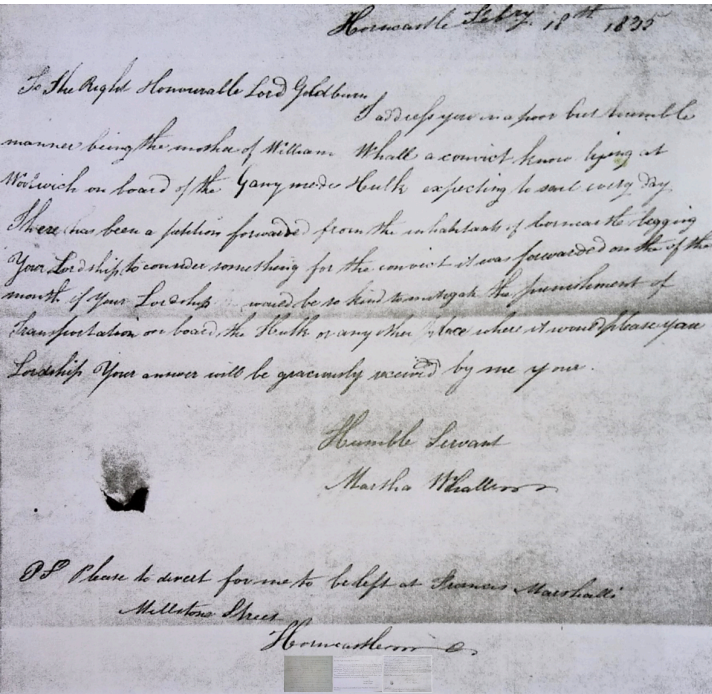 Horncastle Febry. 18th 1835
To The Right Honourable Lord Goldburn
I address you in a poor but humble
manner being the mother of William Whall a convict know lying at
Woolwich on board of the Ganymede Hulk expecting to sail every day
There has been a petition forwarded from the inhabitants of Horncastle begging
Your Lordship to consider something for the convict it was forwarded on the of the
month if Your Lordship would be so kind to mitigate the punishment of
Transportation on board the Hulk or any other place where it would please your
Lordship Your answer will be graciously received by me your.
Humble Servant
Martha Whall
PS Please to direct for me to be left at Francis Marshalls
Millstone Street
Horncastle